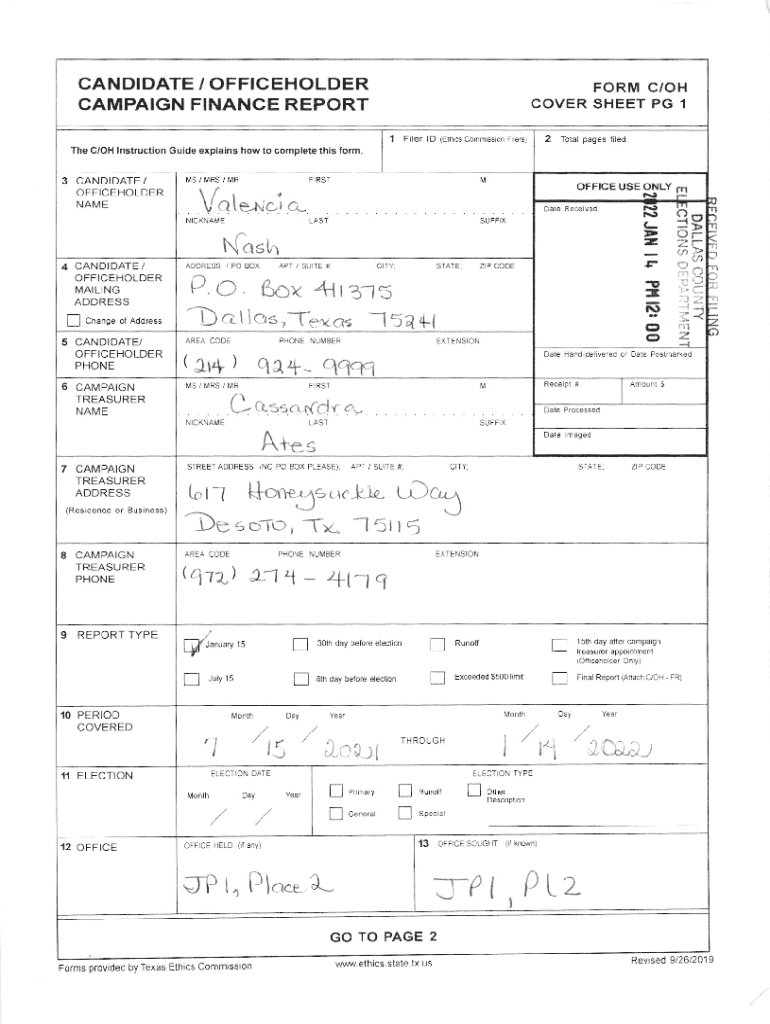 CANDIDATE / OFFICEHOLDER
CAMPAIGN FINANCE REPORT
FORM C/OH
COVER SHEET PG 1
The C/OH Instruction Guide explains how to complete this form.
1 Filer ID (Ethics Commission Filers)
2 Total pages filed
3 CANDIDATE / OFFICEHOLDER NAME
MS / MRS / MR FIRST MI
Valencia
NICKNAME LAST SUFFIX
Nash
OFFICE USE ONLY
Date Received
RECEIVED FOR FILING
DALLAS COUNTY
ELECTIONS DEPARTMENT
2022 JAN 14 PM 12: 00
4 CANDIDATE / OFFICEHOLDER MAILING ADDRESS
Change of Address
ADDRESS / PO BOX APT / SUITE # CITY; STATE; ZIP CODE
P.O. Box 411375
Dallas, Texas 75241
5 CANDIDATE/ OFFICEHOLDER PHONE
AREA CODE PHONE NUMBER EXTENSION
(214) 924-9999
Date Hand-delivered or Date Postmarked
6 CAMPAIGN TREASURER NAME
MS / MRS / MR FIRST MI
Cassandra
NICKNAME LAST SUFFIX
Ates
Receipt # Amount $
Date Processed
Date Imaged
7 CAMPAIGN TREASURER ADDRESS
(Residence or Business)
STREET ADDRESS (NO PO BOX PLEASE); APT / SUITE #; CITY; STATE; ZIP CODE
617 Honeysuckle Way
Desoto, Tx. 75115
8 CAMPAIGN TREASURER PHONE
AREA CODE PHONE NUMBER EXTENSION
(972) 274-4179
9 REPORT TYPE
January 15 30th day before election Runoff 15th day after campaign treasurer appointment (Officeholder Only)
July 15 8th day before election Exceeded $500 limit Final Report (Attach C/OH - FR)
10 PERIOD COVERED
Month Day Year Month Day Year
7 / 15 / 2021 THROUGH 1 / 14 / 2022
11 ELECTION
ELECTION DATE ELECTION TYPE
Month Day Year
/ /
Primary Runoff Other Description
General Special
12 OFFICE
OFFICE HELD (if any)
JP1, Place 2
13 OFFICE SOUGHT (if known)
JP1, Pl 2
GO TO PAGE 2
Forms provided by Texas Ethics Commission www.ethics.state.tx.us Revised 9/26/2019